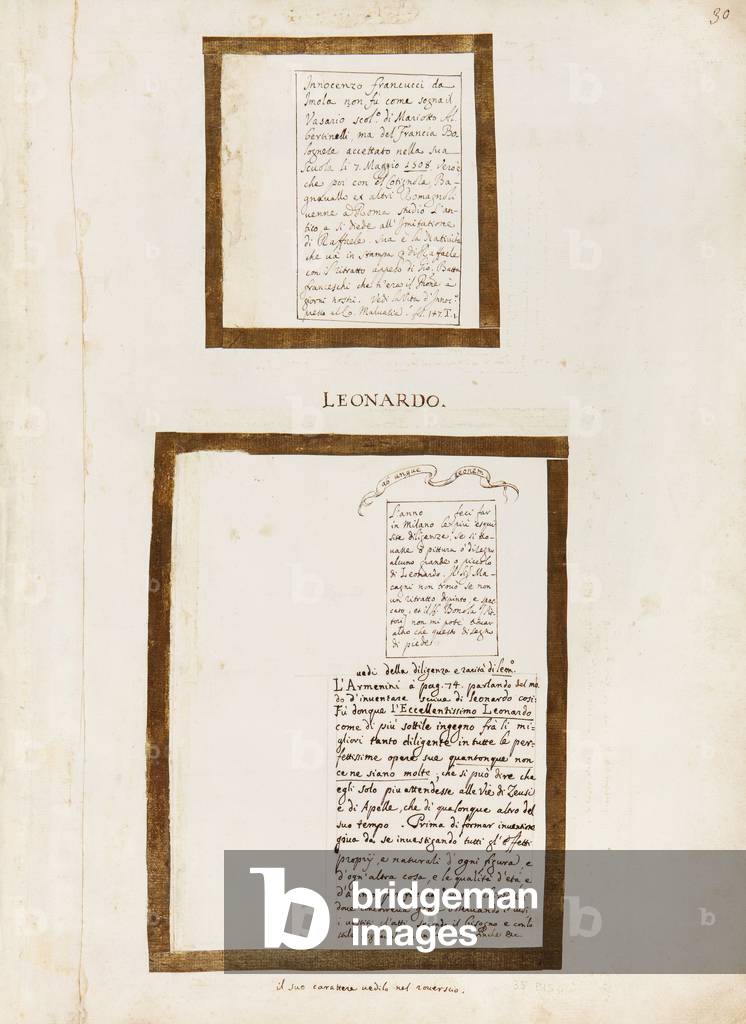 30
Innocenzo francucci da
Imola non fù come sogna il
Vasario scol.º di Mariotto Al
bertinelli, ma del Francia Bo
lognese accettato nella sua
scuola li 7. Maggio 1508. Vero è
che poi con il Cotignola, Ba-
gnavallo et altri Romagnoli
venne à Roma studiò l'an-
tico, e si diede all' Imitatione
di Raffaele. sua è la Natività
che và in stampa di Raffaele
con il Ritratto appeso di Gio. Batta
franceschi che n'era il Prone à
giorni nostri. Vedi la Vita d'Innoc.º
presso al Co. Malvasia. fol. 147. T. 1.
LEONARDO.
ab ungue leonem
L'anno feci far
in Milano le più esqui
site diligenze, se si tro-
vasse di pittura ò disegno
alcuno grande o piccolo
di Leonardo. Il Sig. Ma-
cagni non trovò se non
un ritratto dipinto, e spac
cato, et il Sig. Bonola
non mi potè
altro che questo disegno
di piede
vedi della diligenza e rarità di leon.º
L'Armenini à pag. 74. parlando del mo
do d'inventare scriva di leonardo cosi:
Fù donque l'Eccellentissimo Leonardo
come di più sottile ingegno frà li mi-
gliori tanto diligente in tutte le per-
fettissime opere sue quantonque non
ce ne siano molte, che si può dire che
egli solo piu attendesse alle vie di Zeusi
e di Apelle, che di qualonque altro del
suo tempo. Prima di formar inventione
giva da se investigando tutti gl'effetti
proprij, e naturali d'ogni figura, e
d'ogn'altra cosa, e le qualità d'età e
il suo carattere vedilo nel rouerscio.
b bridgeman
images